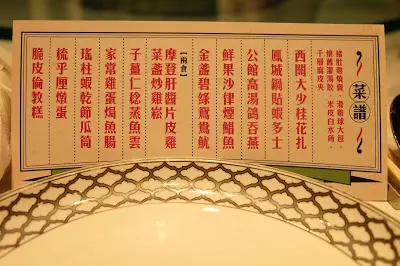 菜譜
豬肚雞燒賣、滑雞球大包、
懷舊灌湯餃、米皮白水角、
千層腐皮夾。
西關大少桂花扎
鳳城鍋貼蝦多士
公館高湯鴿吞燕
鮮果沙律煙鯧魚
金盞碧綠鴛鴦魷
【兩食】
摩登肝醬片皮雞
菜盞炒雞崧
子薑仁稔蒸魚雲
家常雞蛋焗魚腸
瑤柱蝦乾節瓜筒
梳乎厘燉蛋
脆皮倫教糕